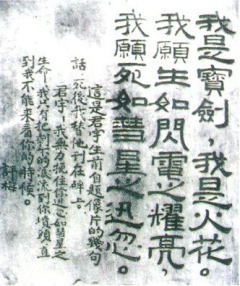 我是寶劍,我是火花。
我願生如閃電之耀亮,
我願死如彗星之迅忽。
這是君宇生前自題像片的幾句
話,死後我替他刊在碑上。
君宇!我無力挽住你迅忽如彗星之
生命,我只有把剩下的淚流到你墳頭,直
到我不能來看你的時候。
評梅